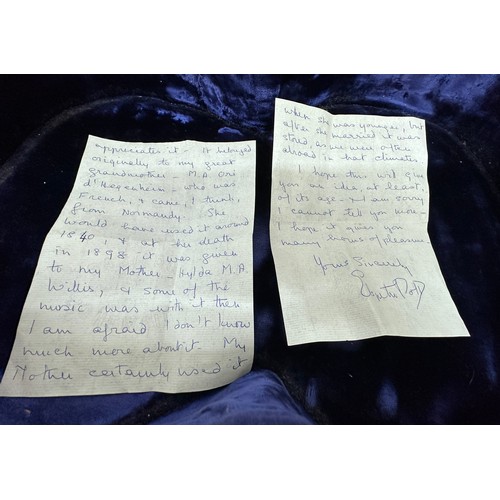 appreciates it - It belonged
originally to my great
Grandmother - M.A. Oni
d'Hegenheim - who was
French, & came, I think,
from Normandy. She
would have used it around
1840, & at her death
in 1898 it was given
to my Mother - Hylda M.A.
Willis, & some of the
music was with it then
I am afraid I don't know
much more about it. My
Mother certainly used it
when she was younger, but
after she married it was
stored, as we were often
abroad in hot climates
I hope this will give
you an idea, at least,
of its age - and am sorry
I cannot tell you more -
I hope it gives you
many hours of pleasure -
Yours Sincerely